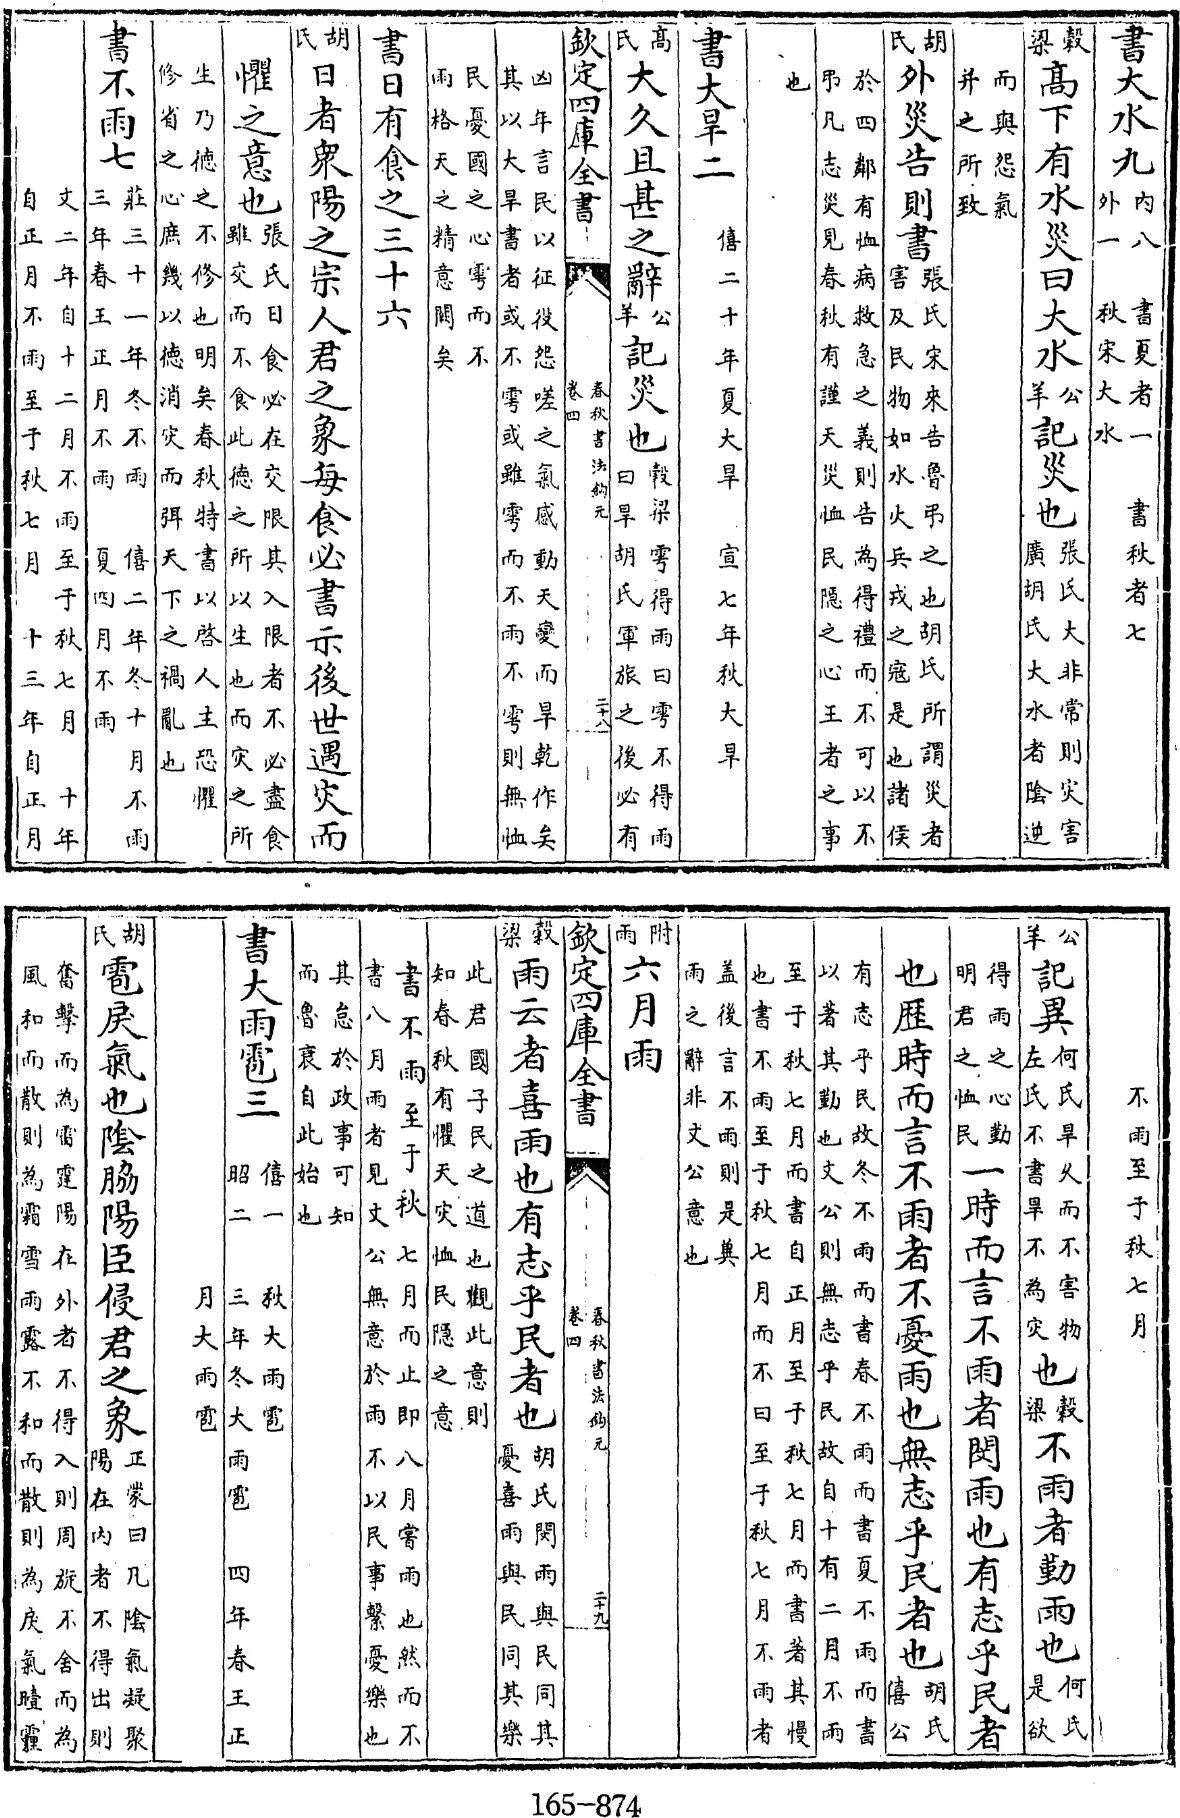 書大水九 內八 書夏者一 書秋者七
外一 秋宋大水
穀梁高下有水災曰大水公羊記災也張氏大非常則灾害
廣胡氏大水者陰逆
而與怨氣
并之所致
胡氏外災告則書張氏宋來告魯弔之也胡氏所謂災者
害及民物如水火兵戎之寇是也諸侯
於四鄰有恤病救急之義則告為得禮而不可以不
弔凡志災見春秋有謹天災恤民隱之心王者之事
也
書大旱二 僖二十年夏大旱 宣七年秋大旱
高氏大久且甚之辭公羊記災也穀梁雩得雨曰雩不得雨
曰旱胡氏軍旅之後必有
欽定四庫全書 春秋書法鉤元 卷四 二十八
凶年言民以征役怨嗟之氣感動天變而旱乾作矣
其以大旱書者或不雩或雖雩而不雨不雩則無恤
民憂國之心雩而不
雨格天之精意闕矣
書日有食之三十六
胡氏日者衆陽之宗人君之象每食必書示後世遇灾而
懼之意也張氏曰食必在交限其入限者不必盡食
雖交而不食此德之所以生也而灾之所
生乃德之不修也明矣春秋特書以啓人主恐懼
修省之心庶幾以德消灾而弭天下之禍亂也
書不雨七 莊三十一年冬不雨 僖二年冬十月不雨
三年春王正月不雨 夏四月不雨
文二年自十二月不雨至于秋七月 十年
自正月不雨至于秋七月 十三年自正月
不雨至于秋七月
公羊記異何氏旱久而不害物
左氏不書旱不為灾也穀梁不雨者勤雨也何氏
是欲
得雨之心勤
明君之恤民一時而言不雨者閔雨也有志乎民者
也歴時而言不雨者不憂雨也無志乎民者也胡氏
僖公
有志乎民故冬不雨而書春不雨而書夏不雨而書
以著其勤也文公則無志乎民故自十有二月不雨
至于秋七月而書自正月至于秋七月而書著其慢
也書不雨至于秋七月而不曰至于秋七月不雨者
盖後言不雨則是冀
雨之辭非文公意也
附雨六月雨
欽定四庫全書 春秋書法鉤元 卷四 二十九
穀梁雨云者喜雨也有志乎民者也胡氏閔雨與民同其
憂喜雨與民同其樂
此君國子民之道也觀此意則
知春秋有懼天灾恤民隱之意
書不雨至于秋七月而止即八月嘗雨也然而不
書八月雨者見文公無意於雨不以民事繫憂樂也
其怠於政事可知
而魯衰自此始也
書大雨雹三 僖一 秋大雨雹
昭二 三年冬大雨雹 四年春王正
月大雨雹
胡氏雹戾氣也陰脇陽臣侵君之象正蒙曰凡陰氣凝聚
陽在內者不得出則
奮擊而為雷霆陽在外者不得入則周旋不舍而為
風和而散則為霜雪雨露不和而散則為戾氣曀霾
165-874